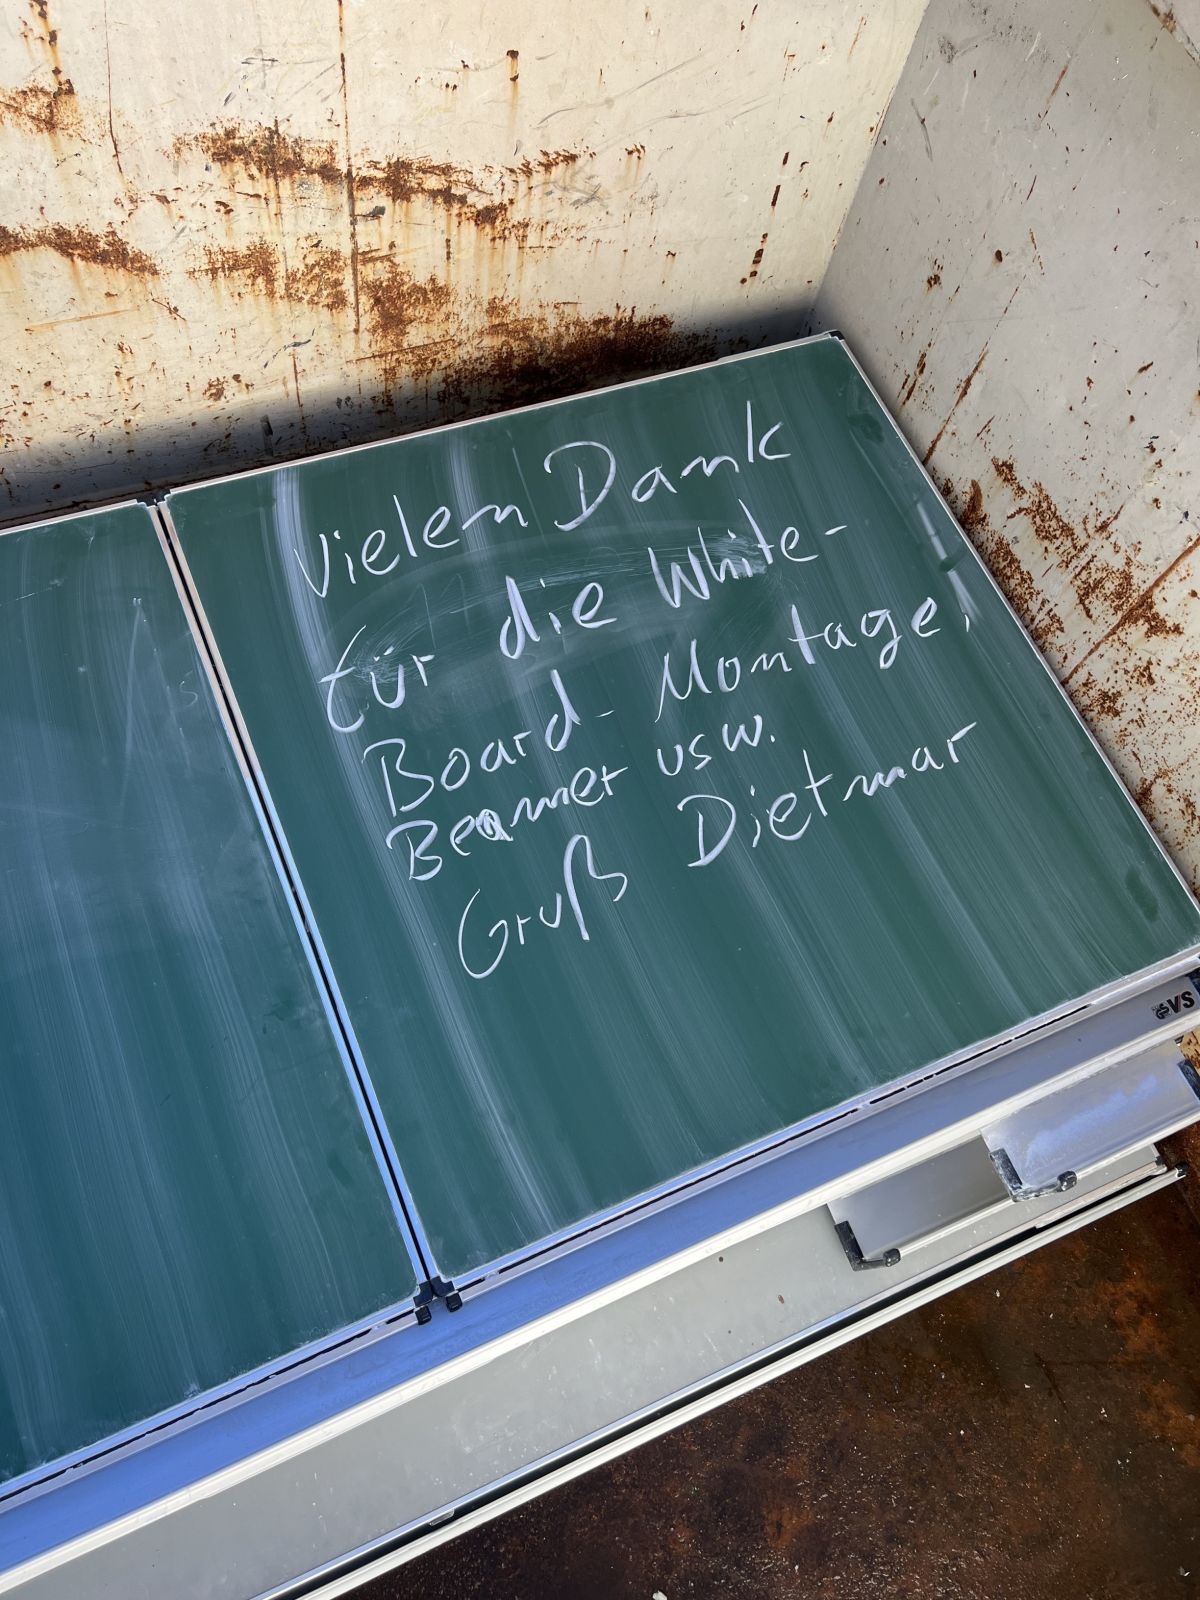 Vielen Dank
für die White-
Board- Montage,
Beamer usw.
Gruß Dietmar
VS